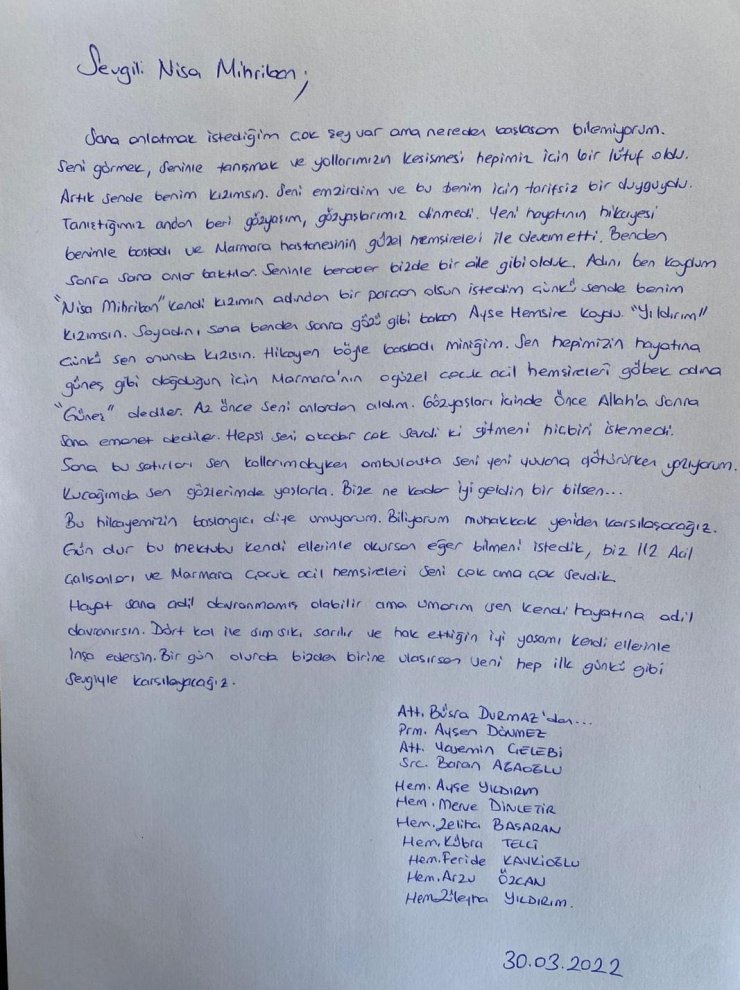 Sevgili Nisa Mihriban;
Sana anlatmak istediğim çok şey var ama nereden başlasam bilemiyorum.
Seni görmek, seninle tanışmak ve yollarımızın kesişmesi hepimiz için bir lütuf oldu.
Artık sende benim kızımsın. Seni emzirdim ve bu benim için tarifsiz bir duyguydu.
Tanıştığımız andan beri gözyaşım, gözyaşlarımız dinmedi. Yeni hayatının hikayesi
benimle başladı ve Marmara hastanesinin güzel hemşireleri ile devam etti. Benden
sonra sana onlar baktılar. Seninle beraber bizde bir aile gibi olduk. Adını ben koydum
"Nisa Mihriban" kendi kızımın adından bir parçan olsun istedim çünkü sende benim
kızımsın. Soyadını sana benden sonra gözü gibi bakan Ayşe Hemşire koydu. "Yıldırım"
çünkü sen onunda kızısın. Hikayen böyle başladı miniğim. Sen hepimizin hayatına
güneş gibi doğduğun için Marmara'nın o güzel çocuk acil hemşireleri göbek adına
"Güneş" dediler. Az önce seni onlardan aldım. Gözyaşları içinde Önce Allah'a sonra
sana emanet dediler. Hepsi seni okadar çok sevdi ki gitmeni hiçbiri istemedi.
Sana bu satırları sen kollarımdayken ambulasta seni yeni yuvana götürürken yazıyorum.
Kucağımda sen gözlerimde yaşlarla. Bize ne kadar iyi geldin bir bilsen...
Bu hikayemizin başlangıcı diye umuyorum. Biliyorum muhakkak yeniden karşılaşacağız.
Gün olur bu mektubu kendi ellerinle okursan eğer bilmeni istedik, biz 112 Acil
Çalışanları ve Marmara Çocuk acil hemşireleri seni çok ama çok sevdik.
Hayat sana adil davranmamış olabilir ama umarım sen kendi hayatına adil
davranırsın. Dört kol ile sım sıkı sarılır ve hak ettiğin iyi yaşamı kendi ellerinle
inşa edersin. Bir gün olurda bizden birine ulaşırsan seni hep ilk günkü gibi
sevgiyle karşılayacağız.
Att. Büşra DURMAZ'dan...
Prm. Ayşen DÖNMEZ
Att. Yasemin ÇELEBİ
Src. Baran AĞAOĞLU
Hem. Ayşe YILDIRIM
Hem. Merve DİNLETİR
Hem. Zeliha BAŞARAN
Hem. Kübra TELCİ
Hem. Feride KAYKIOĞLU
Hem. Arzu ÖZCAN
Hem. Züleyha YILDIRIM.
30.03.2022